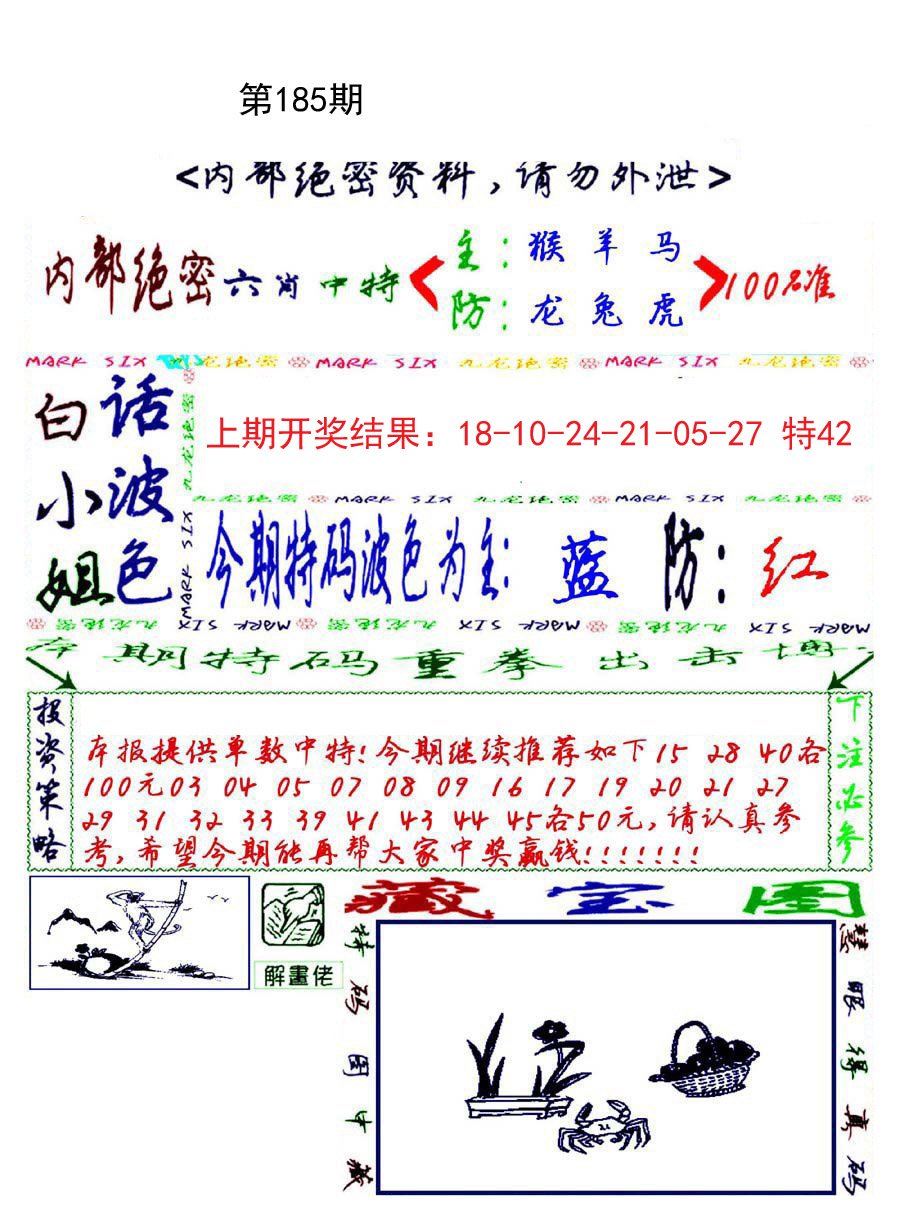 第185期
<内部绝密资料,请勿外泄>
内部绝密六肖中特
主:猴羊马
防:龙兔虎
100%准
MARK SIX 九龙绝密 MARK SIX 九龙绝密 MARK SIX 九龙绝密
白小姐
话波色
九龙绝密
MARK SIX
上期开奖结果：18-10-24-21-05-27 特42
九龙绝密 MARK SIX 九龙绝密 MARK SIX 九龙绝密
今期特码波色为主: 蓝 防:红
九龙绝密 MARK SIX 九龙绝密 MARK SIX 九龙绝密 MARK SIX
本期特码重拳出击博
投资策略
本报提供单数中特!今期继续推荐如下15 28 40各
100元03 04 05 07 08 09 16 17 19 20 21 27
29 31 32 33 39 41 43 44 45各50元,请认真参
考,希望今期能再帮大家中奖赢钱!!!!!!!
下注必参
解畫佬
藏宝图
特码图中藏
慧眼得真码